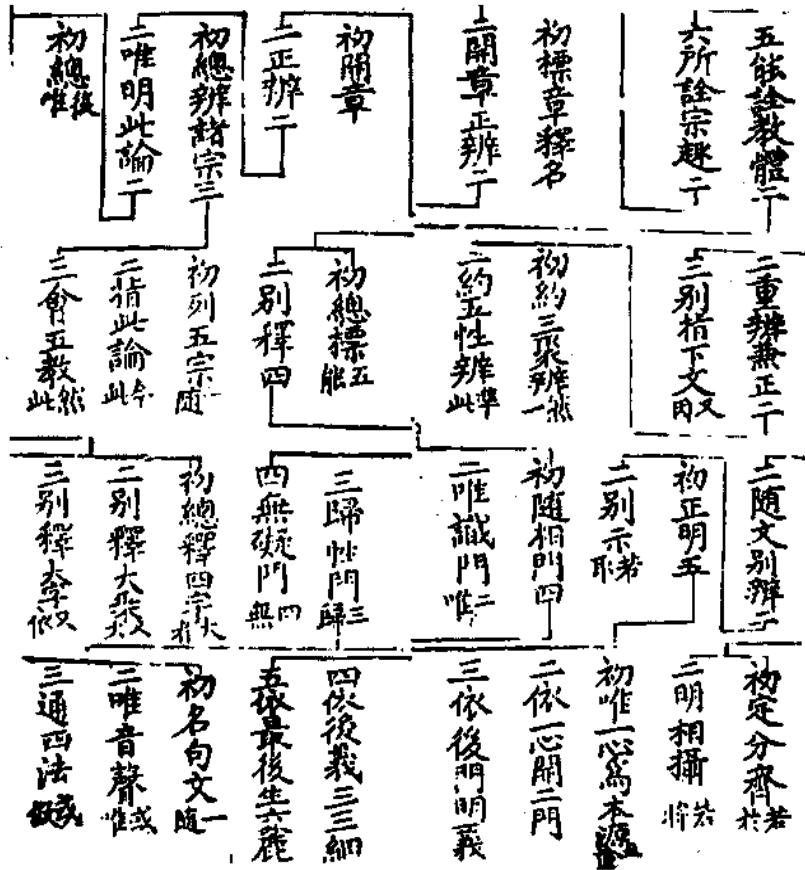 五能詮教體二
六所詮宗趣二
初標章釋名
二開章正辨二
初開章
二正辨二
初總辨諸宗三
二唯明此論二
初總後唯
二重辨兼正二
三別指下文又因
初約三聚辨然一
二約五性辨準此
初總標五能
二別釋四
初列五宗一隨
二指此論今此
三會五教然此
二隨文別辨二
初正明五
二別示若取
初隨相門四
二唯識門二唯
三歸性門三歸
四無礙門四無
初總釋四宗大
二別釋大乘
三別釋大宗又依
初定分齊若於
二明相攝若將
初唯一心為本源
二依一心開二門
三依後門明義
四依後義三三細
五依最後生六麁
初名句文一隨
二唯音聲或唯
三通四法或